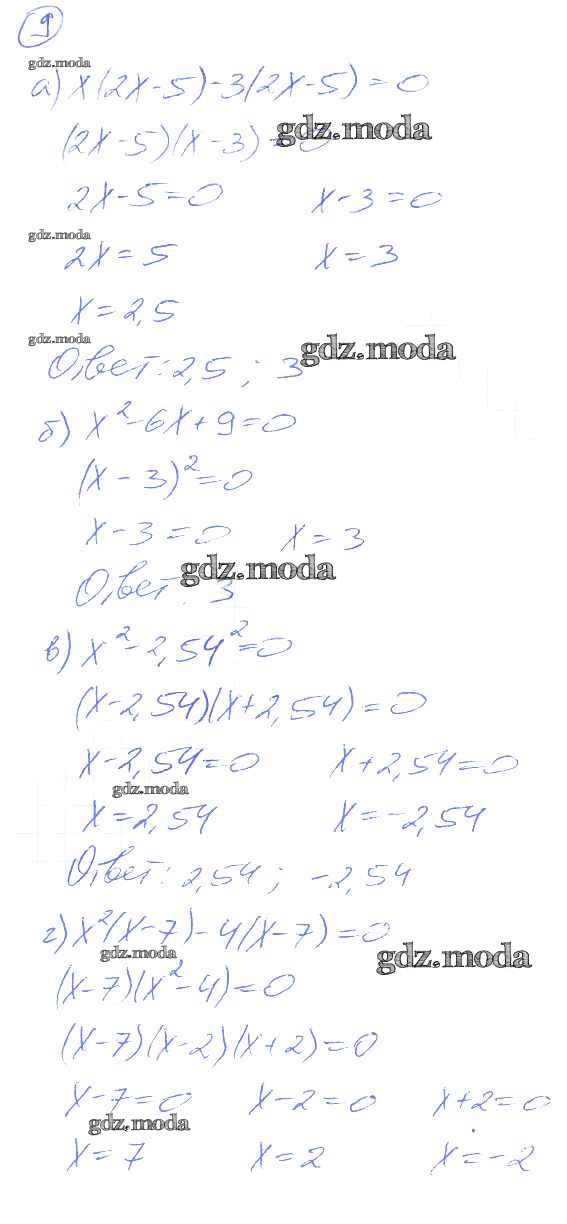 9
gdz.moda
а) x(2x-5)-3(2x-5)=0
(2x-5)(x-3)=0
gdz.moda
2x-5=0 x-3=0
gdz.moda
2x=5 x=3
x=2,5
gdz.moda
gdz.moda
Ответ: 2,5 ; 3
б) x²-6x+9=0
(x-3)²=0
x-3=0 x=3
gdz.moda
Ответ: 3
в) x²-2,54²=0
(x-2,54)(x+2,54)=0
x-2,54=0 x+2,54=0
gdz.moda
x=2,54 x=-2,54
Ответ: 2,54 ; -2,54
г) x²(x-7)-4(x-7)=0
gdz.moda
gdz.moda
(x-7)(x²-4)=0
(x-7)(x-2)(x+2)=0
x-7=0 x-2=0 x+2=0
gdz.moda
x=7 x=2 x=-2